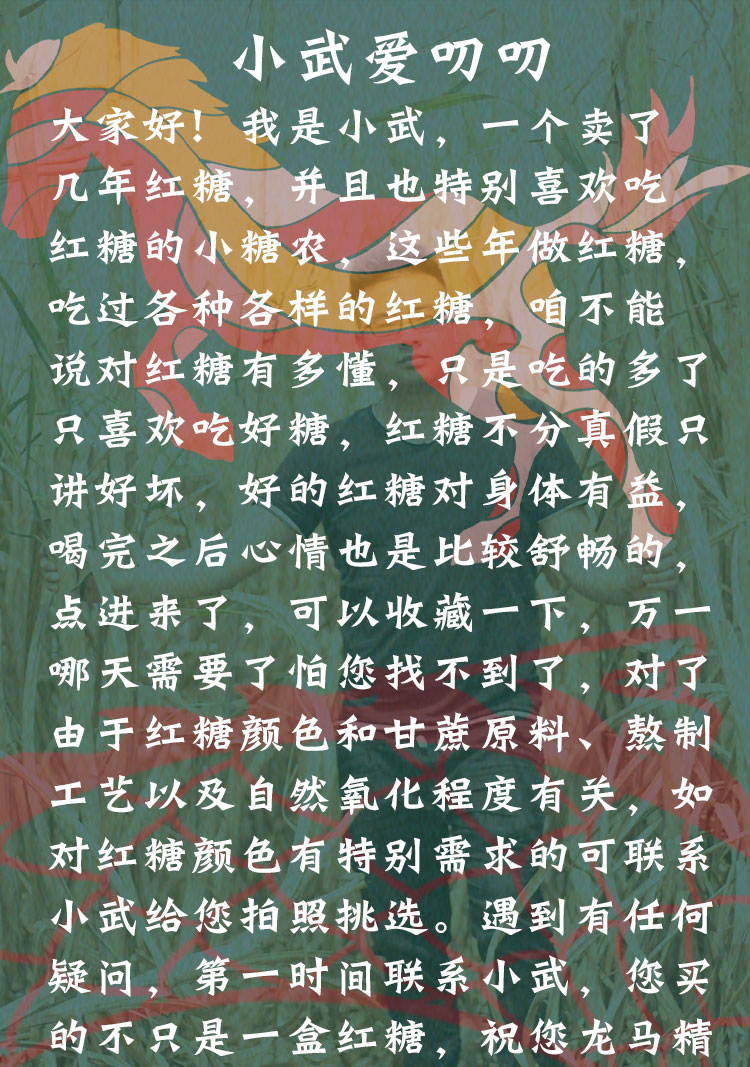 小武爱叨叨
大家好！我是小武，一个卖了
几年红糖，并且也特别喜欢吃
红糖的小糖农，这些年做红糖，
吃过各种各样的红糖，咱不能
说对红糖有多懂，只是吃的多了
只喜欢吃好糖，红糖不分真假只
讲好坏，好的红糖对身体有益，
喝完之后心情也是比较舒畅的，
点进来了，可以收藏一下，万一
哪天需要了怕您找不到了，对了
由于红糖颜色和甘蔗原料、熬制
工艺以及自然氧化程度有关，如
对红糖颜色有特别需求的可联系
小武给您拍照挑选。遇到有任何
疑问，第一时间联系小武，您买
的不只是一盒红糖，祝您龙马精